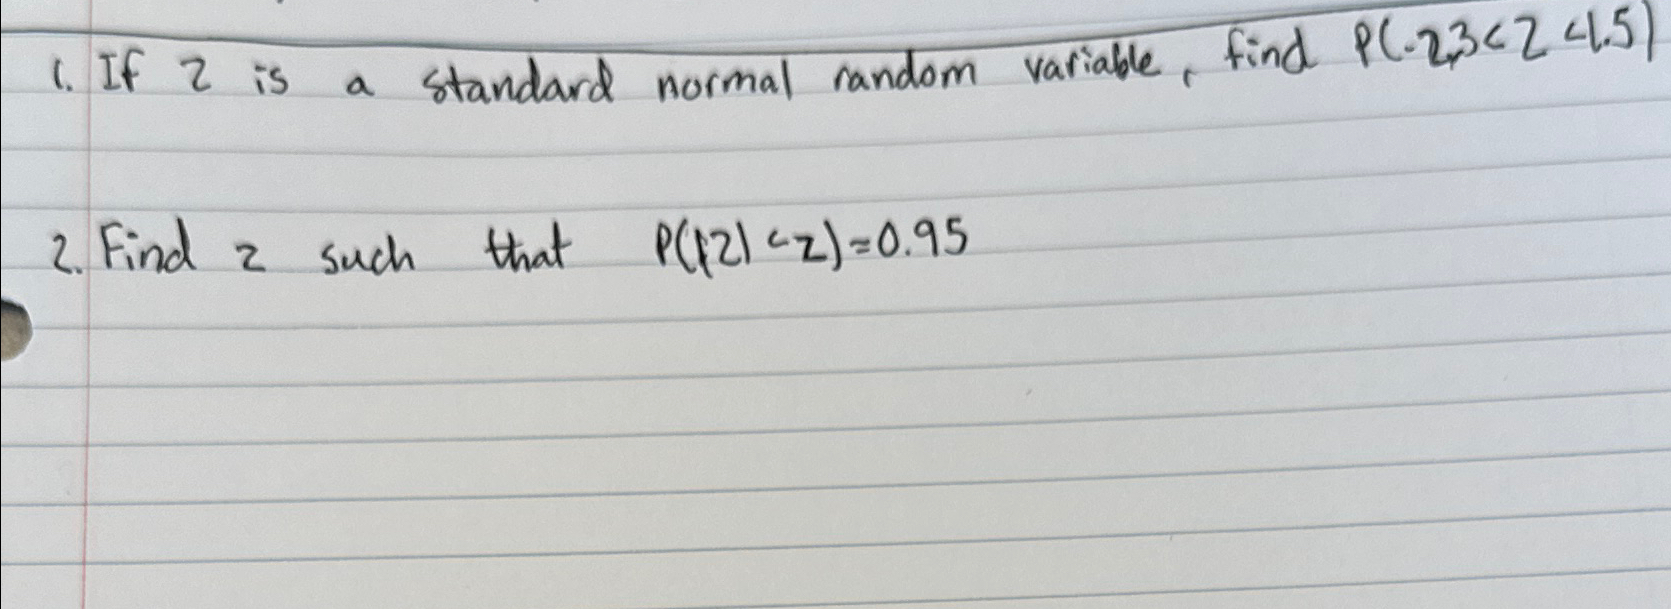 1. If Z is a standard normal random variable, find P(-2.3<Z<1.5)
2. Find z such that P(|Z|<z)=0.95